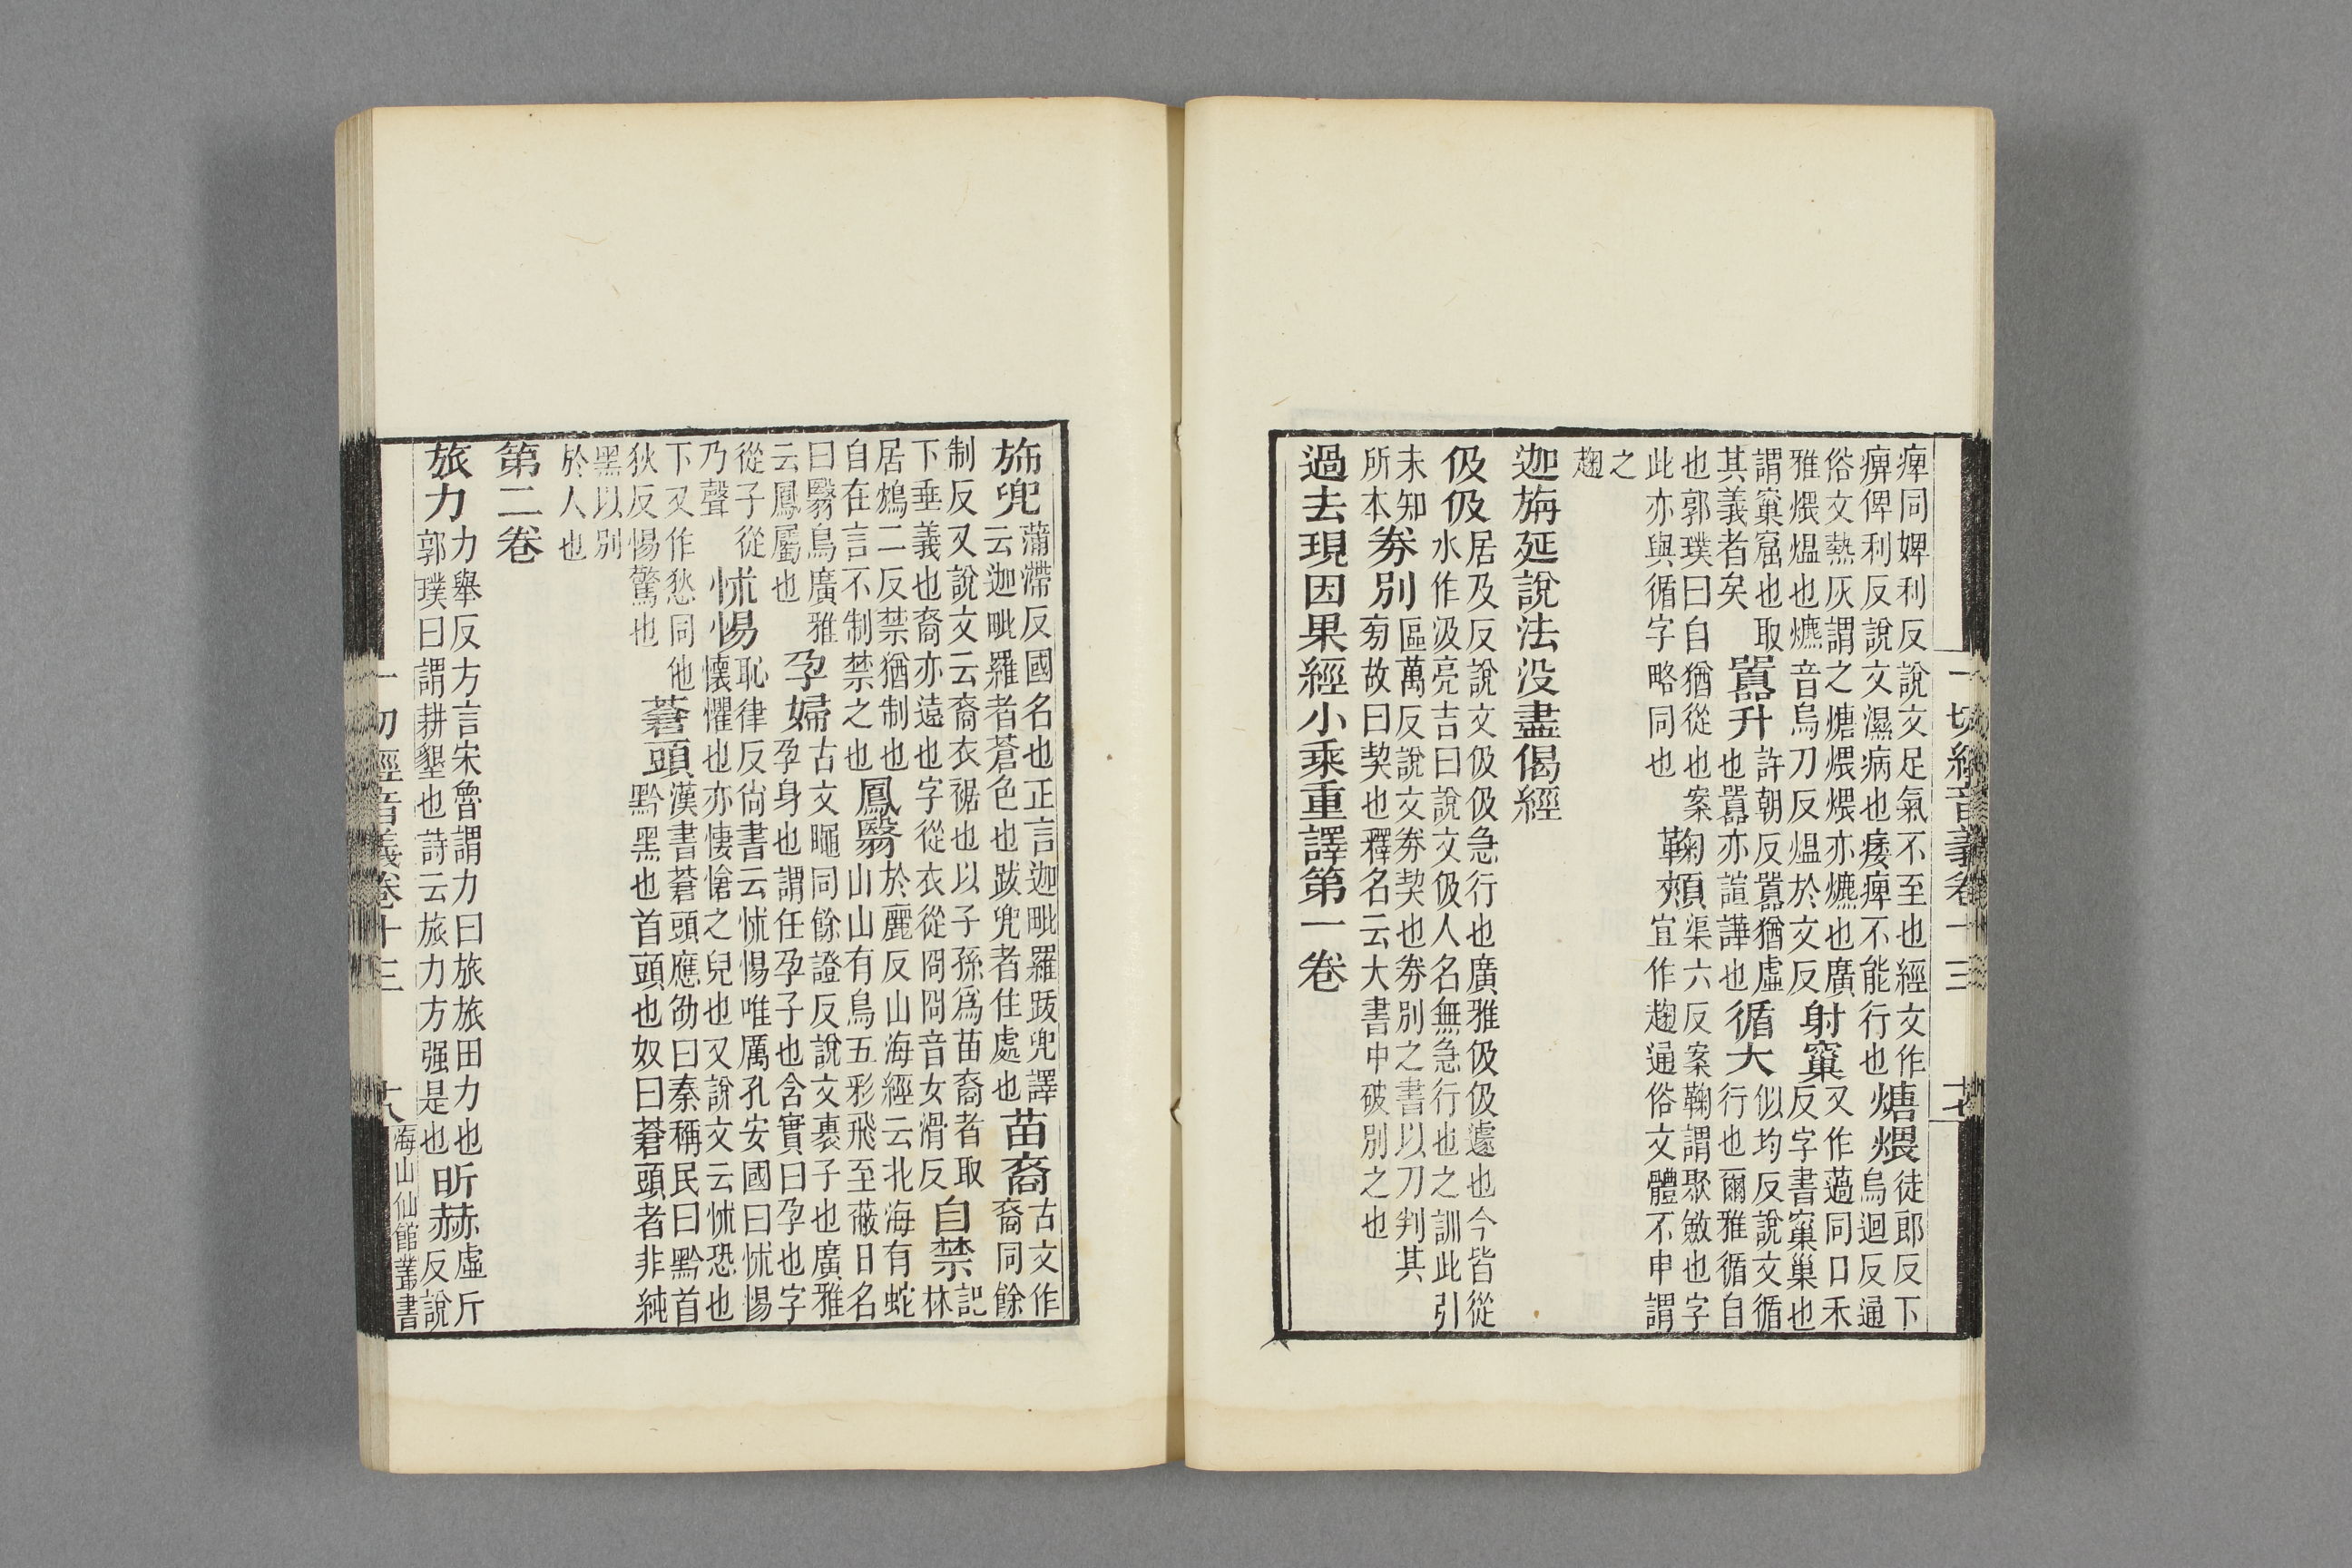 一切經音義卷十三 十七
痺同婢利反說文足氣不至也經文作
痹俾利反說文濕病也痿痺不能行也
煻煨
徒郎反下
烏迴反通
俗文熱灰謂之煻煨煨亦爊也廣
雅煨熅也爊音烏刀反熅於文反
射窠
又作薖同口禾
反字書窠巢也
謂窠窟也取
其義者矣
囂升
許朝反囂猶虛
也囂亦諠譁也
循大
似均反說文循
行也爾雅循自
也郭璞曰自猶從也案
此亦與循字略同也
鞠頰
渠六反案鞠謂聚斂也字
宜作趜通俗文體不申謂
之
趜
迦旃延說法没盡偈經
伋伋
居及反說文伋伋急行也廣雅伋伋遽也今皆從
水作汲亮吉曰說文伋人名無急行也之訓此引
未知
所本
券別
區萬反說文券契也券別之書以刀判其
旁故曰契也釋名云大書中破別之也
過去現因果經小乘重譯第一卷
斾兜
蒲滯反國名也正言迦毗羅跋兜譯
云迦毗羅者蒼色也跋兜者住處也
苗裔
古文作
裔同餘
制反又說文云裔衣裾也以子孫爲苗裔者取
下垂義也裔亦遠也字從衣從冏冏音女滑反
自禁
記
林
居鴆二反禁猶制也
自在言不制禁之也
鳳翳
於麗反山海經云北海有蛇
山山有鳥五彩飛至蔽日名
曰翳鳥廣雅
云鳳屬也
孕婦
古文䵴同餘證反說文裹子也廣雅
孕身也謂任孕子也含實曰孕也字
從子從
乃聲
怵惕
恥律反尙書云怵惕唯厲孔安國曰怵惕
懷懼也亦悽愴之皃也又說文云怵恐也
下又作愁同他
狄反惕驚也
蒼頭
漢書蒼頭應劭曰秦稱民曰黔首
黔黑也首頭也奴曰蒼頭者非純
黑以別
於人也
第二卷
旅力
力舉反方言宋魯謂力曰旅旅田力也
郭璞曰謂耕墾也詩云旅力方强是也
昕赫
虛斤
反說
一切經音義卷十三 十八 海山仙館叢書